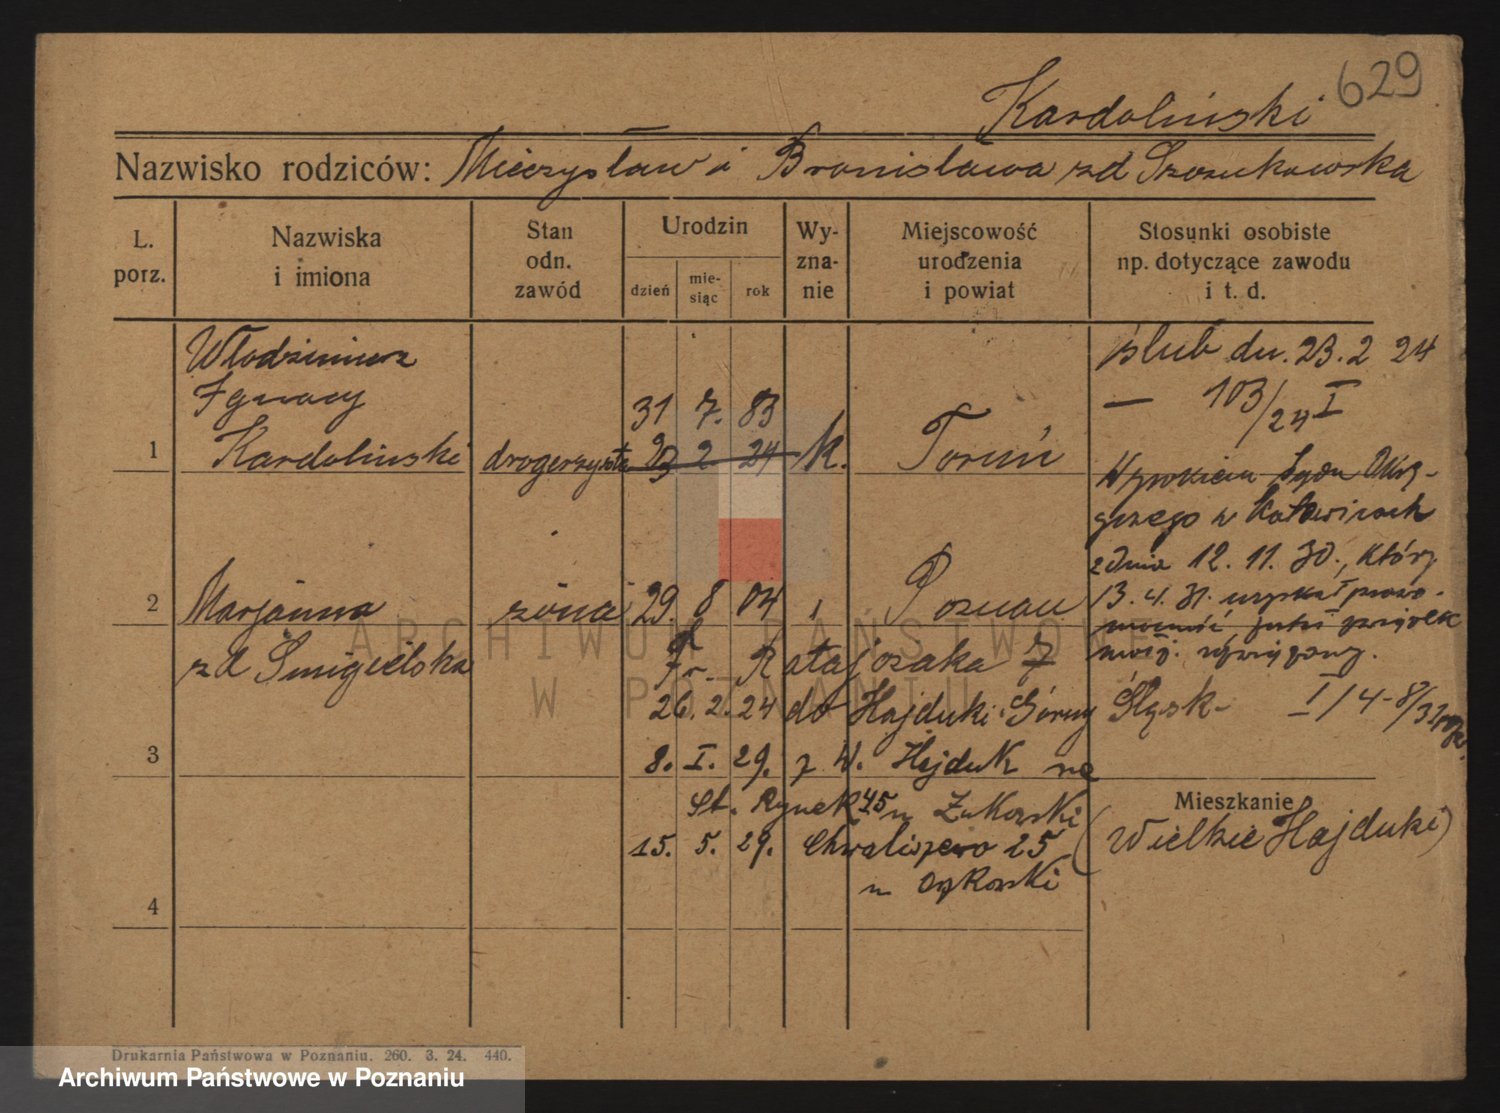 629
Kardoliński
Nazwisko rodziców: Mieczysław i Bronisława zd Szczukowska
L. porz.
Nazwiska i imiona
Stan odn. zawód
Urodzin
dzień
mie- siąc
rok
Wy- zna- nie
Miejscowość urodzenia i powiat
Stosunki osobiste np. dotyczące zawodu i t. d.
Włodzimierz
Ignacy
1 Kardoliński drogerzysta
31 7. 83
23 2 24
k. Toruń
ślub dn. 23.2 24
— 103/24 I
Wyrokiem Sądu Okrę-
gowego w Katowicach
z dnia 12. 11. 30., który
13. 4. 31. uzyskał prawo-
mocność, został związek
małż. rozwiązany.
2 Marjanna żona 29. 8 04 , Poznań
zd Śmigielska
Fr. Ratajczaka 7
26. 2. 24 do Hajduki Górny Śląsk -
3 8. I. 29. z W. Hajduk na
St. Rynek 45 u Żukowski
15. 5. 29. Chwaliszewo 25
u
4
Mieszkanie
(Wielkie Hajduki)
ARCHIWUM PAŃSTWOWE
W POZNANIU
Drukarnia Państwowa w Poznaniu. 260. 3. 24. 440.
Archiwum Państwowe w Poznaniu